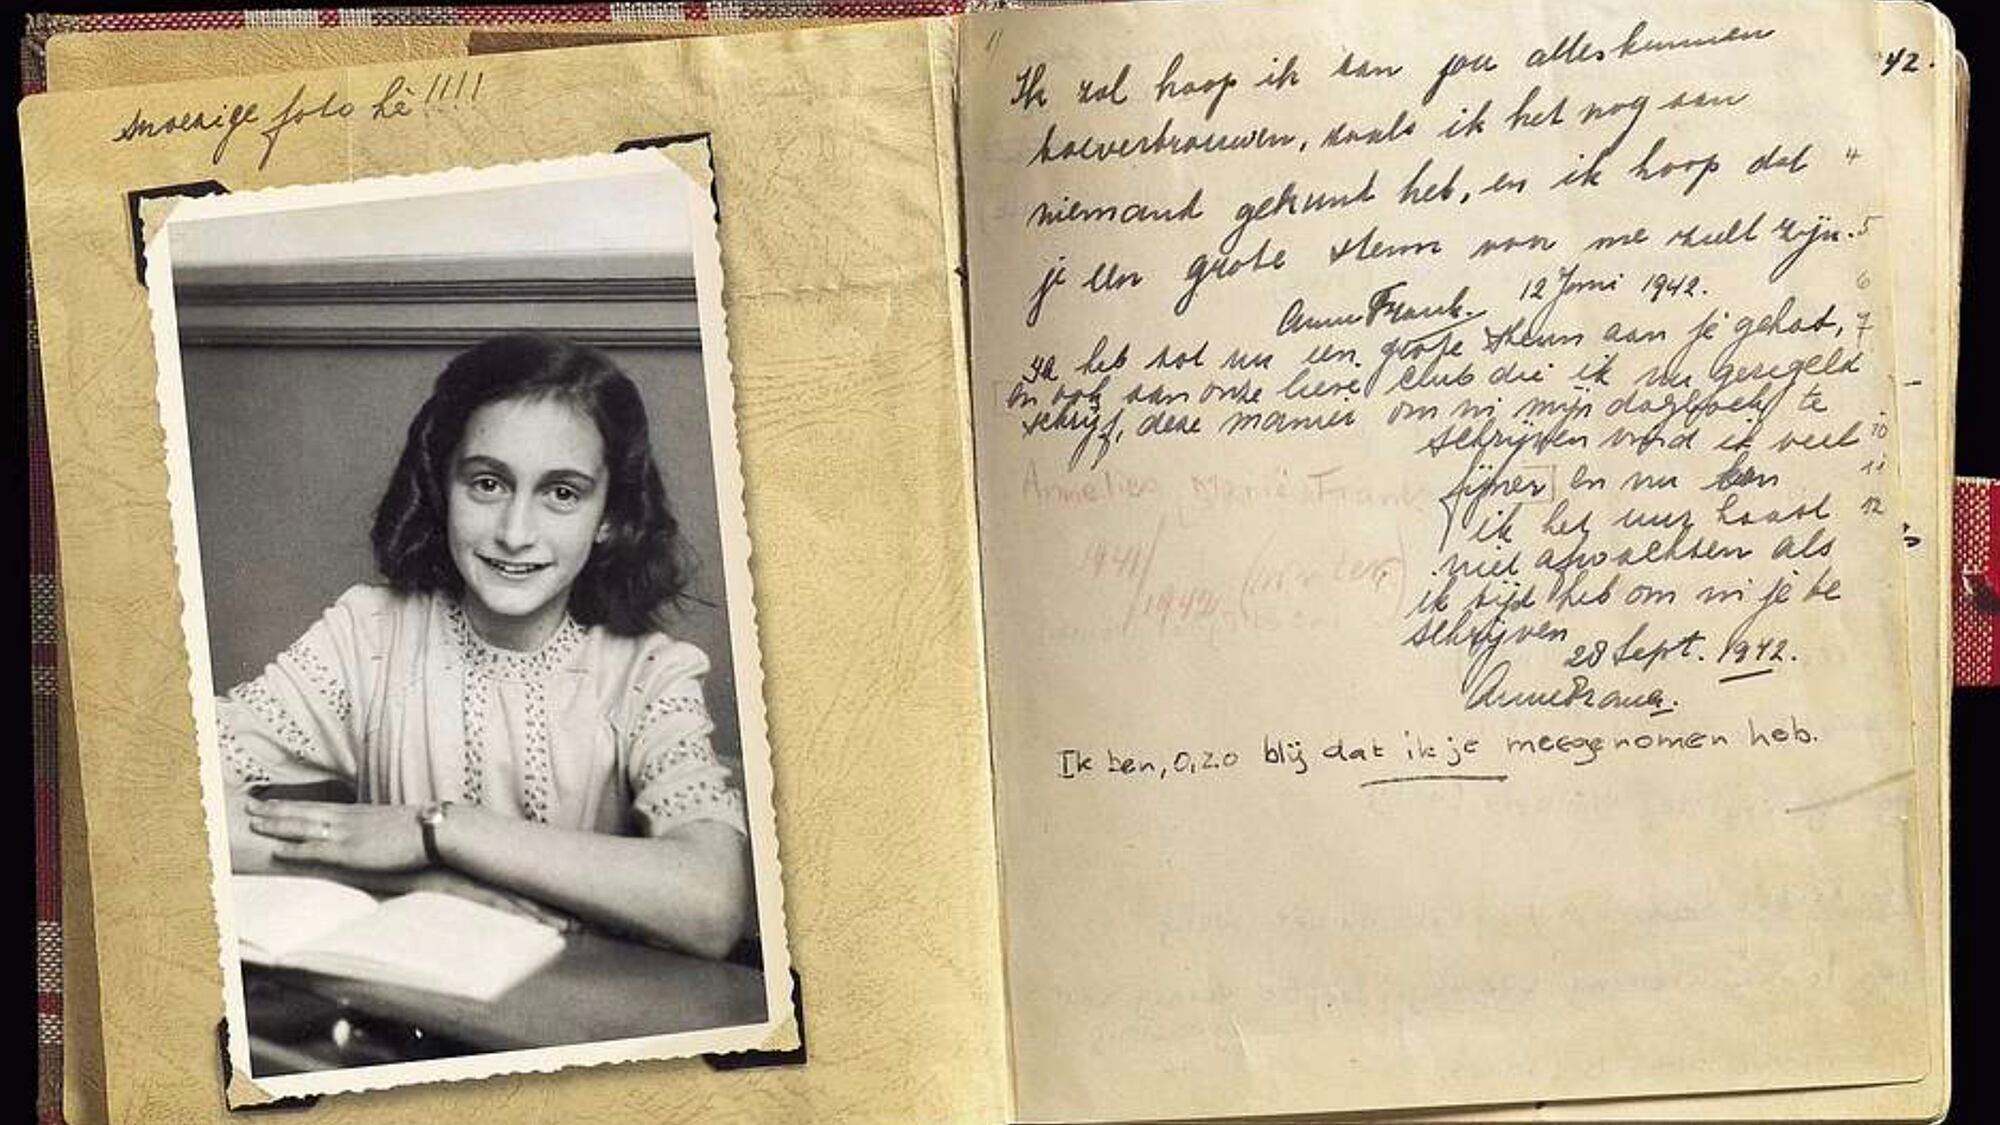 snoezige foto hè!!!!
Ik zal hoop ik aan jou alles kunnen
toevertrouwen, zoals ik het nog aan
niemand gekund heb, en ik hoop dat
je een grote steun voor me zult zijn.
Anne Frank. 12 Juni 1942.
Ik heb tot nu een grote steun aan je gehad,
en ook aan onze lieve club die ik nu geregeld
schrijf, deze manier om in mijn dagboek te
schrijven vind ik veel
fijner en nu kan
ik het uur haast
niet afwachten als
ik tijd heb om in je te
schrijven
28 Sept. 1942.
Anne Frank.
Ik ben, O, zo blij dat ik je meegenomen heb.
42.
4
5
6
7
10
11
12
Annelies Marie Frank
1941/
1942